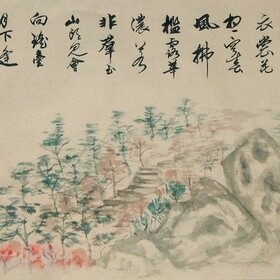 衣裳花
想容春
風拂
檻露華
濃若
非羣玉
山頭見會
向瑤臺
月下逢